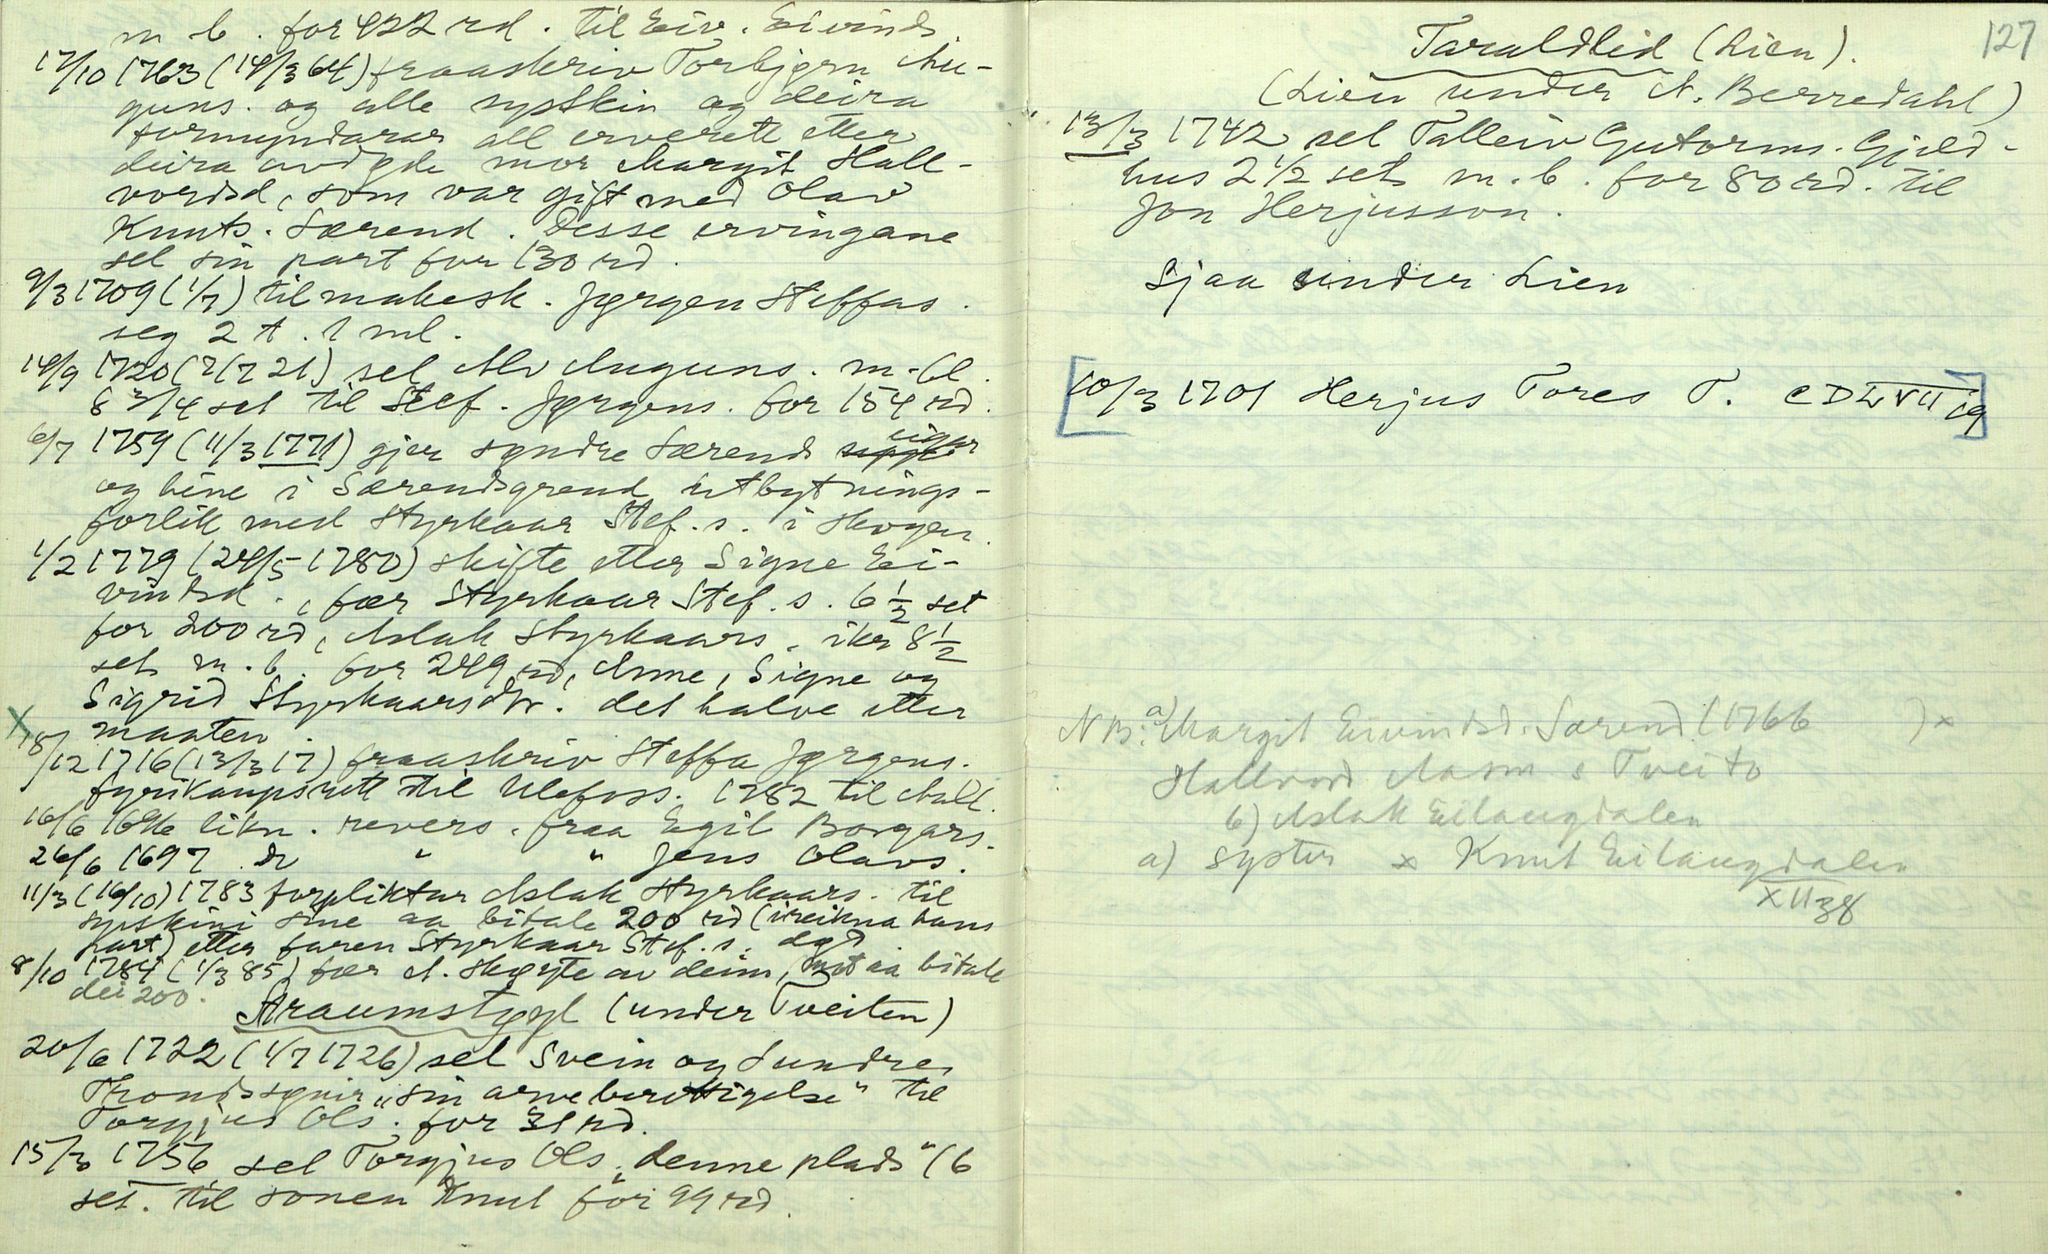 m b. for 422 rd. til Eiv. Eivinds.
17/10 1763 (14/3 64) fraaskriv Torbjørn Au-
guns. og alle sysskin og deira
formyndarar all erverett etter
deira avdøde mor Margit Hall-
vordsd, som var gift med Olav
Knuts. Særend. Desse ervingane
sel sin part for 130 rd.
9/3 1709 (1/7) til makesk. Jørgen Steffas.
seg 2 t. 1 ml.
14/9 1720 (2/7 21) sel Alv Auguns. m-bl.
8 3/4 set til Stef. Jørgens. for 154 rd.
6/7 1759 (11/3 1771) gjer syndre Særend eigar
og hine i Særendsgrend utbytnings-
forlik med Styrkaar Stef. s. i Skogen
1/2 1779 (24/5 1780) skifte etter Signe Ei-
vindsd., fær Styrkaar Stef. s. 6 1/2 set
for 200 rd, Aslak Styrkaars. ikr 8 1/2
set m. b. for 249 rd, Anne, Signe og
Sigrid Styrkaarsdtr. det halve etter
maaten.
X 18/12 1716 (13/3 17) fraaskriv Steffa Jørgens.
fyrikaupsrett til Ulefoss. 1782 til Aall.
16/6 1696 likn. revers. fraa Egil Borgars.
26/6 1697 do " " Jens Olavs.
11/3 (16/10) 1783 forpliktar Aslak Styrkaars. til
syskini sine aa bitala 200 rd (ireikna hans
part) etter faren Styrkaar Stef. s. død
8/10 1784 (1/3 85) fær A. skøyte av deim, mot aa bitale
dei 200.
Straumstøyl (under Tveiten)
20/6 1722 (1/7 1726) sel Svein og Sundre
Throndssønir "sin arveberettigelse" til
Torgjus Ols. for 31 rd.
15/3 1756 sel Torgjus Ols. "denne plads" (6
set. til sonen Knut for 99 rd.
127
Taraldlid (Lien).
(Lien under N. Berredahl)
13/3 1742 sel Talleiv Gutorms. Gjeld-
hus 2 1/2 set m. b. for 80 rd. til
Jon Herjusson.
Sjaa under Lien
[10/3 1701 Herjus Tores T. CDLVII 19]
NB: a) Margit Eivindsd. Særend (1766 ) x
Hallvord Aasm s Tveito
b) Aslak Eilaugdalen
a) syster x Knut Eilaugdalen
XII 38